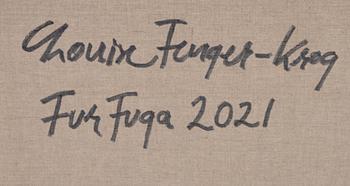 Louise Fenger-Krog
Fur Fuga 2021